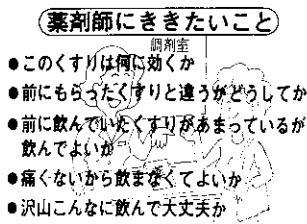 薬剤師にききたいこと
調剤室
●このくすりは何に効くか
●前にもらったくすりと違うがどうしてか
●前に飲んでいたくすりがあまっているが
飲んでよいか
●痛くないから飲まなくてよいか
●沢山こんなに飲んで大丈夫か